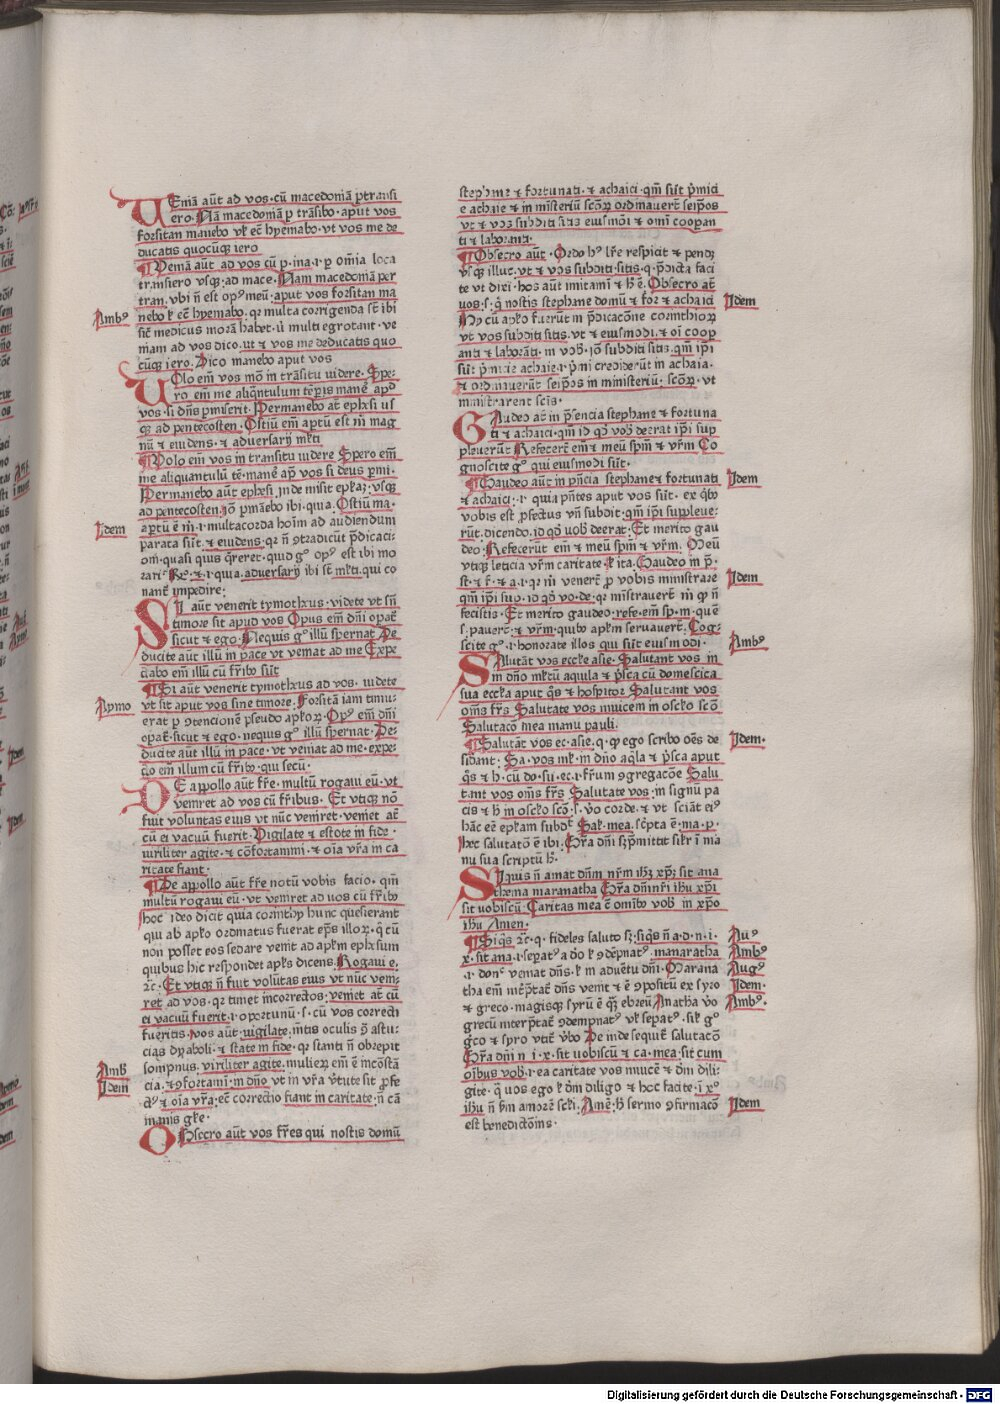 UEniā aūt ad vos cū macedoniā ꝑtransi
ero. Nā macedoniā ꝑ trāsibo. aput vos
forsitan manebo vƚ eē hyemabo. vt vos me de
ducatis quocūqꝫ iero
Veniā aūt ad vos cū ꝑ. ina. i. ꝑ om̄ia loca
transiero vsqꝫ. ad mace. Nam macedoniā per
tran. vbi n̄ est opꝰ meū. aput vos forsitan ma
nebo ƚ eē hyemabo. qꝛ multa corrigenda st̄ ibi
sic̄ medicus morā habet. ū multi egrotant. ve
niam ad vos dico. ut ⁊ vos me deducatis quo
cūqꝫ iero. Dico manebo aput vos
UOlo em̄ vos mō in trāsitu videre. Spe
ro em̄ me aliq̄ntulum tēꝑis manē apd
vos. si dn̄s ꝑmiserit. Permanebo at̄ eph̄si us
qꝫ ad pentecosten. Ostiū em̄ aꝑtū est m̄ mag
nū ⁊ euidens. ⁊ adversarij mƚti
Volo em̄ vos in transitu videre Spero em̄
me aliquantulū tē. manē ap̄ vos si deus ꝑmi.
Permanebo aūt eph̄si. inde misit epƚaꝫ. vsqꝫ
ad pentecosten. iō ꝑmāebo ibi. quia. Ostiū ma.
aꝑtū ē m̄. i. multa corda hoīm ad audiendum
parata sūt. ⁊ euidens. qꝛ n̄ ꝯtradicūt p̄dicaci
oni. quasi quis q̄reret. quid gͦ opꝰ est ibi mo
rari. Rͦ. ⁊. i. quia. adversarij ibi st̄ mƚti. qui co
nant̄ impedire.
SI aūt venerit tymotheus. videte vt sn̄
timore sit apud vos Opus em̄ dn̄i opat̄
sicut ⁊ ego. Nequis gͦ illū spernat De
ducite aūt illū in pace vt veniat ad me Expe
cto em̄ illū cū fr̄ibꝰ
Si aūt venerit tymotheus ad vos. videte
vt sit aput vos sine timore. Forsitā iam timu
erat ꝑ ꝯtencionē pseudo apƚoꝝ. Opꝰ em̄ dn̄i
opat̄. sicut ⁊ ego. nequis gͦ illū spernat. De
ducite aūt illū in pace. vt veniat ad me. expe
cto em̄ illum cū fr̄ibꝰ. qui secū.
DE appollo aūt fr̄e. multū rogaui eū. vt
veniret ad vos cū fr̄ibus. Et vtiqꝫ nō
fuit voluntas eius vt nūc veniret. veniet at̄
cū ei vacuū fuerit. Vigilate ⁊ estote in fide.
viriliter agite. ⁊ cōfortamini. ⁊ oīa vr̄a in ca
ritate fiant.
De appollo aūt fr̄e notū vobis facio. qm̄
multū rogaui eū. vt veniret ad uos cū fr̄ibꝰ
hoc ideo dicit quia corinthij hunc quesierant
qui ab apƚo ordinatus fuerat ep̄s illoꝝ. q̄ cū
non posset eos sedare venit ad apƚm ephesum
quibus hic respondet apƚs dicens. Rogaui e.
⁊c̄. Et vtiqꝫ n̄ fuit volūtas eius vt nūc veni
ret ad vos. qꝛ timet incorrectos. veniet at̄ cū
ei vacuū fuerit. i. oportunū. s. cū vos correcti
fueritis. vos aūt. vigilate. mētis oculis ꝯͣ astu
cias dyaboli. ⁊ state in fide. qꝛ stanti n̄ obrepit
sompnus. viriliter agite. mulieꝝ em̄ ē incōstā
cia. ⁊ ꝯfortami. in dn̄o vt in vr̄a v̄tute sit ꝑfe
ctꝰ. ⁊ oīa vr̄a. eē correctio fiant in caritate. n̄ cā
inanis gƚe.
OBsecro aūt vos fr̄es qui nostis domū
Ambꝰ
Idem
Aymo
Amb
Idem
stephane ⁊ fortunati. ⁊ achaici. qm̄ sūt p̄mici
e achaie ⁊ in misteriū scōꝝ ordinauert̄ seip̄os
vt ⁊ vos subditi sitis eiusmōi ⁊ omī cooꝑan
ti ⁊ laboranti.
Obsecro aūt. Ordo hꝰ lr̄e respicit ⁊ pendꝫ
vsqꝫ illuc. vt ⁊ vos subditi sitis. q. p̄dicta faci
te vt dixi. hos aūt imitami ⁊ h̄ ē. Obsecro at̄
uos. s. q̄ nostis stephane domū ⁊ for ⁊ achaici
Hij cū apƚo fuerūt in p̄dicacōne corinthioꝝ
vt vos subditi sitis. vt ⁊ eiusmodi. ⁊ oī cooꝑ
anti ⁊ laborāti. in vob̄. iō subditi sitis. qm̄ ip̄i
sūt p̄micie achaie. i. p̄mi crediderūt in achaia.
⁊ ordinauerūt seip̄os in ministeriū. scōꝝ. vt
ministrarent scīs.
GAudeo at̄ in p̄sencia stephane ⁊ fortuna
ti ⁊ achaici. qm̄ id qͦ vob̄ deerat ip̄i sup
pleuerūt Refecert̄ em̄ ⁊ meū sp̄m ⁊ vr̄m Co
gnoscite gͦ qui eiusmodi sūt.
Gaudeo aūt in pn̄cia stephane ⁊ fortunati
⁊ achaici. i. quia pn̄tes aput vos sūt. ex qͥbꝰ
vobis est ꝓfectus vn̄ subdit. qm̄ ip̄i suppleue
rūt. dicendo. id qͦ vob̄ deerat. Et merito gau
deo. Refecerūt em̄ ⁊ meū sp̄m ⁊ vr̄m. Meū
vtiqꝫ leticia vr̄m caritate. ƚ ita. Gaudeo in p̄.
st. ⁊ f. ⁊ a. i. qꝛ m̄ venert̄ ꝑ vobis ministrare
qm̄ ip̄i sup. id qͦ vo. de. qꝛ mīstrauert̄ m̄ qͦ n̄
fecistis. Et merito gaudeo. refe. em̄ sp. m. quē
s. pauert̄. ⁊ vr̄m. quibꝰ apƚm seruauert̄. Cog
scite gͦ. i. honorate illos qui sūt eiusmodi.
SAlutāt vos eccƚe asie. Salutant vos in
in dn̄o mƚtū aquila ⁊ p̄sca cū domestica
sua eccƚia aput q̄s ⁊ hospitor Salutant vos
om̄s fr̄s Salutate vos inuicem in oscƚo scō.
Salutacō mea manu pauli.
Salutāt vos ec. asie. q. qꝫ ego scribo oēs de
sidant. Sa. vos mƚ. in dn̄o aqͥla ⁊ p̄sca aput
q̄s ⁊ h. cū do. su. ec. i. fr̄um ꝯgregacōe Salu
tant vos om̄s fr̄s Salutate vos. in signū pa
cis ⁊ h̄ in oscƚo scō. s. ꝟo corde. ⁊ vt sciāt eiꝰ
hāc eē epƚam subdᵗ Saƚ. mea. sc̄pta ē. ma. p.
hec salutatō ē ibi. Gr̄a dn̄i sꝫ p̄mittit siƚr i ma
nu sua scriptū h̄.
SIquis n̄ amat dn̄m nr̄m ih̄ꝫ xp̄ꝫ sit ana
thema maranatha Gr̄a dn̄i nr̄i ih̄u xp̄i
sit uobiscū. Caritas mea ē om̄ibꝰ vob̄ in xp̄o
ih̄u Amen.
Siqͥs ⁊c̄. q. fideles saluto sꝫ. siqͥs n̄ a. d. n. i.
x. sit ana. i. sepatꝰ a dō ƚ ꝯdēpnatꝰ. manaratha
.i. donꝰ veniat dn̄s. ƚ in aduētu dn̄i. Marana
tha em̄ int̄p̄tat̄ dn̄s venit ⁊ ē ꝯpositū ex syro
⁊ greco. magisqꝫ syrū ē qͣꝫ ebreū Anatha ꝟo
grecū int̄pretat̄ ꝯdempnatꝰ vƚ sepatꝰ. siƚ gͦ
gͦco ⁊ syro vtit̄ ꝟbo Deinde sequit̄ salutacō
Gr̄a dn̄i n̄ i. x. sit uobiscū ⁊ ca. mea. sit cum
oibus vob̄. i. ea caritate vos inuicē ⁊ dm̄ dili
gite. q̄ uos ego ƚ dm̄ diligo ⁊ hoc facite. i xͦ
ih̄u n̄ ḥm amorē scƚi. Amē. h̄ sermo ꝯfirmacō
est benedictōnis.
Idem
Idem
Idem
Ambꝰ
Idem.
Auꝰ
Ambꝰ
Augꝰ
Idem
Ambꝰ.
Idem
Digitalisierung gefördert durch die Deutsche Forschungsgemeinschaft - DFG